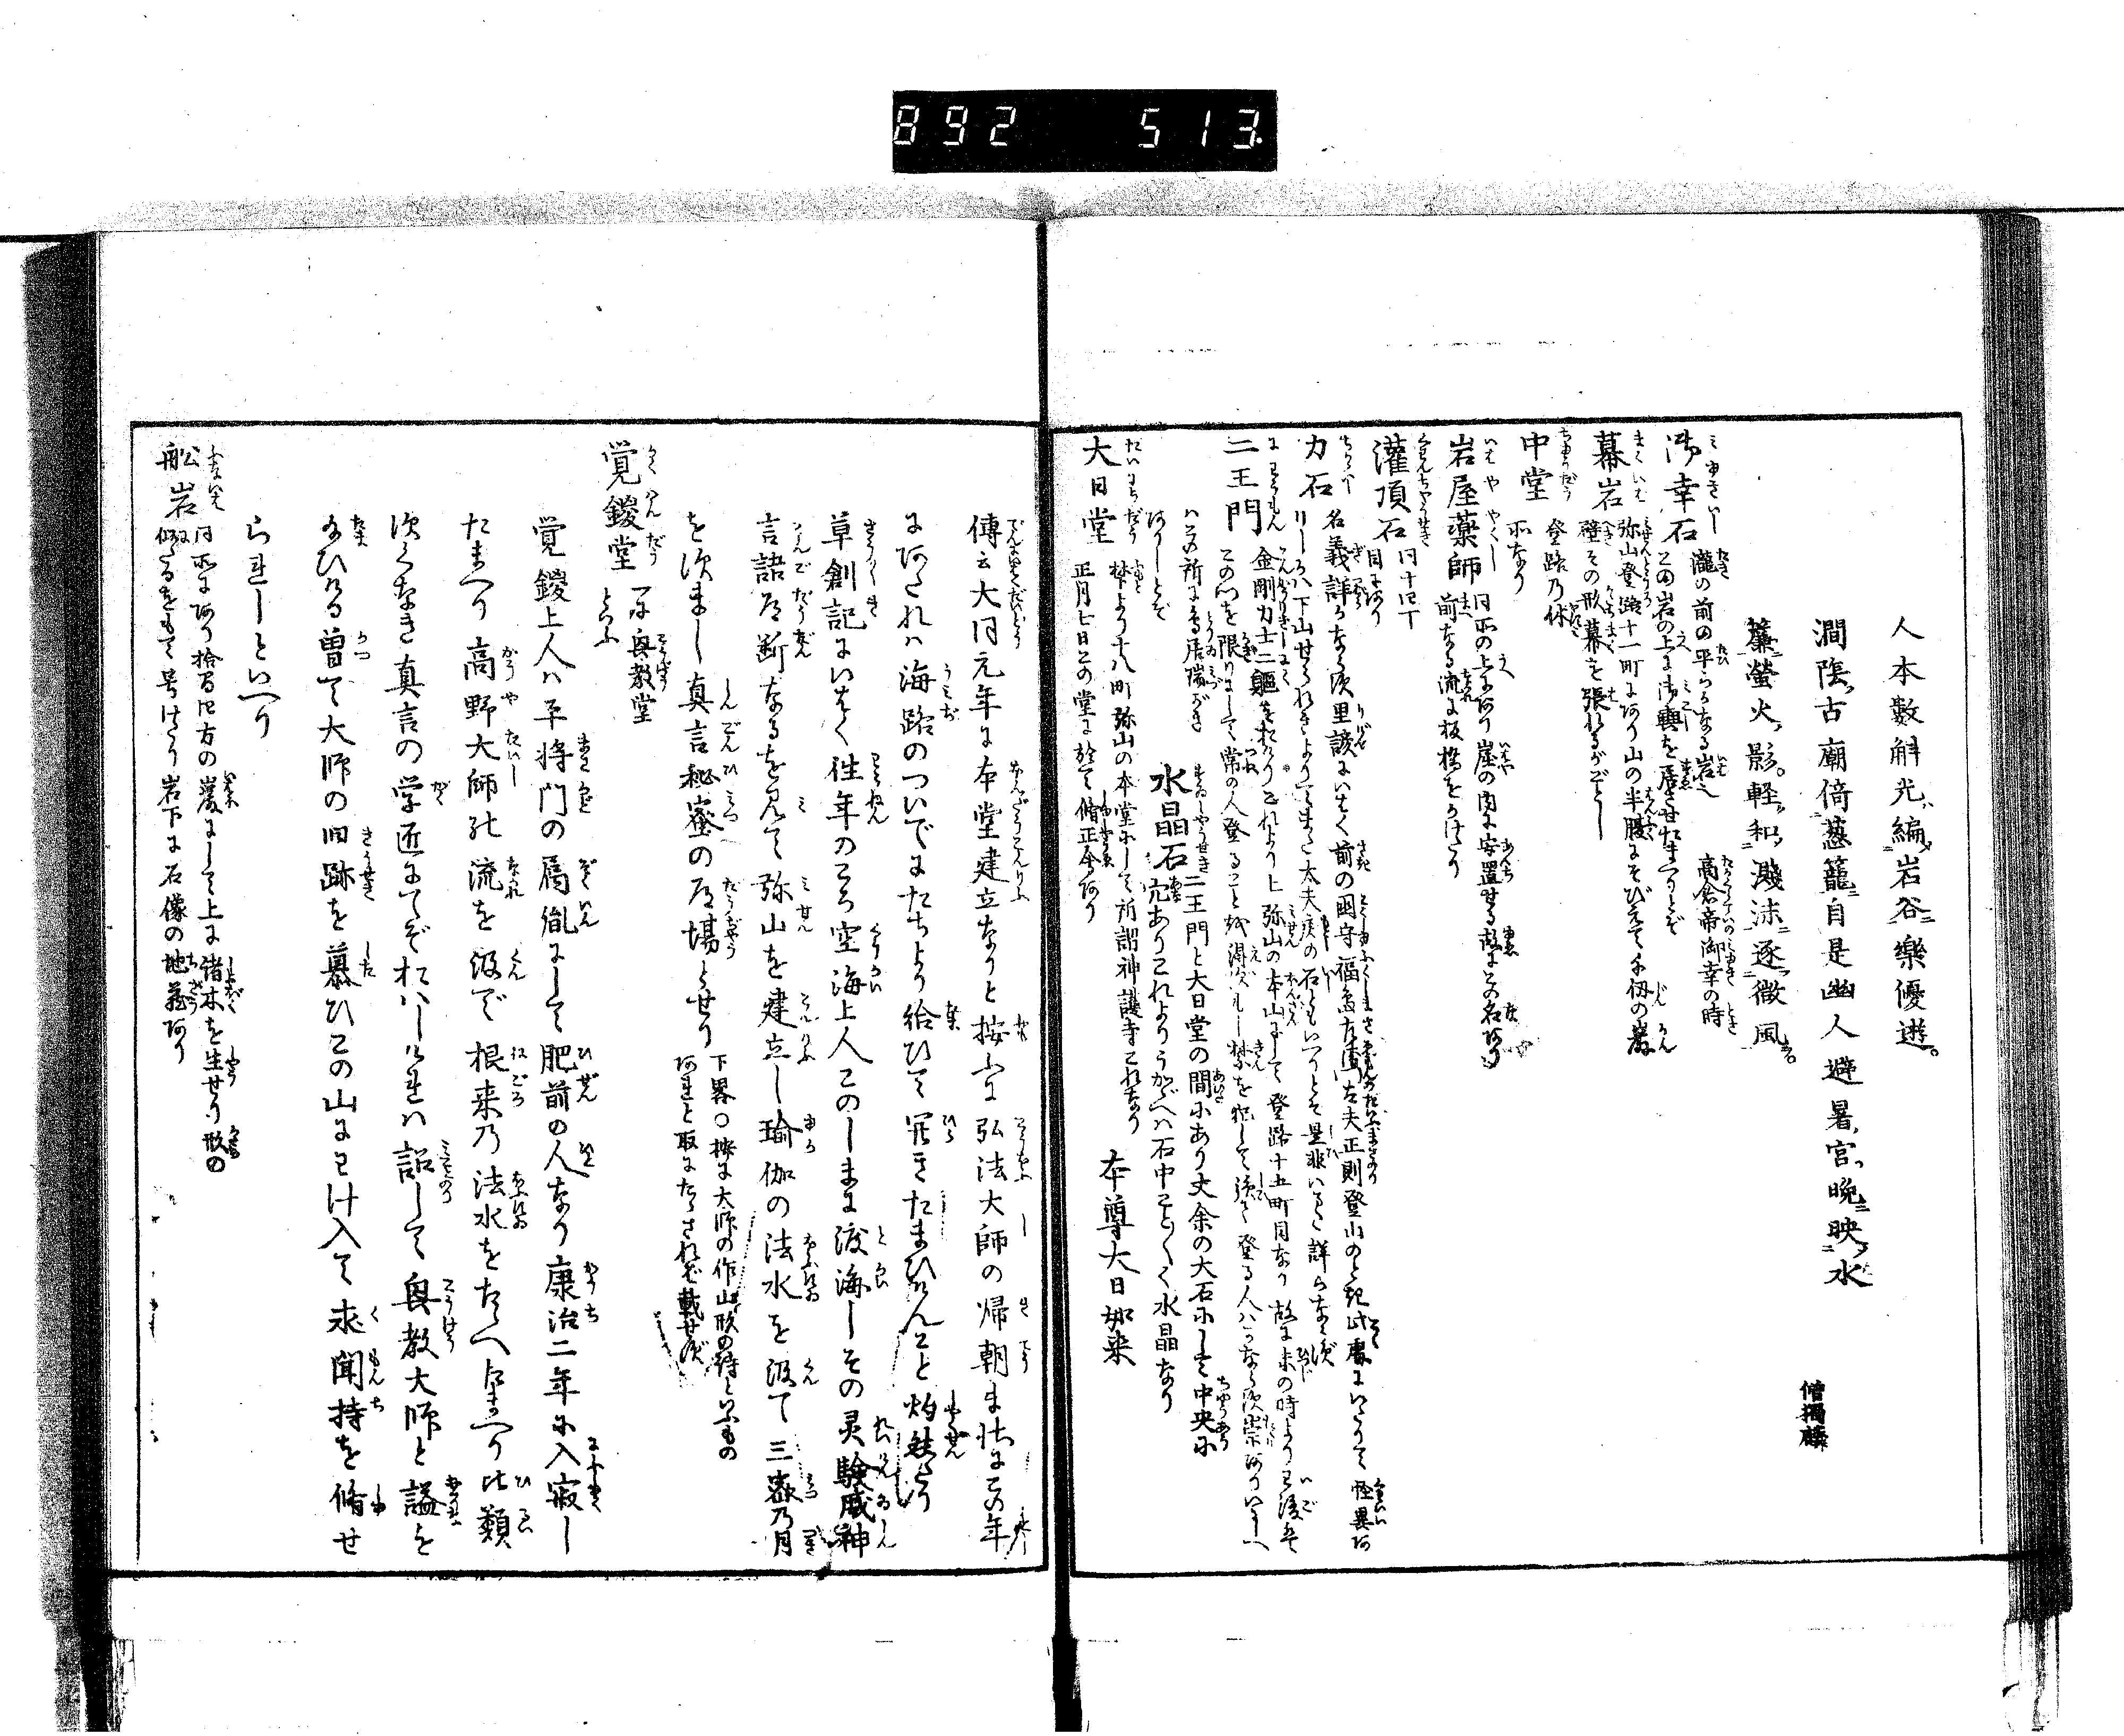 892 513
人本數斛光編岩谷樂優遊
澗陰古廟倚蔥蘢自是幽人避暑宮晩映水
簾螢火影軽和濺沫逐微風
僧獨麟
御幸石 瀧の前の平らかなる岩也 高倉帝御幸の時
この岩の上に御輿を居させたまへりとぞ
幕岩 弥山登路十一町にあり山の半腹にそびえて千仭の巌
壁その形幕を張れるがごとし
中堂 登路の休
所なり
岩屋薬師 同所の上にあり崖の内に安置せる故にこの名あり
前なる流に板橋をかけたり
灌頂石 同十四丁
目にあり
力石 名義詳かならず里諺にいはく前の国守福島左衛門大夫正則登山のとき此処にいたりて怪異あ
りしかバ下山せられきよりてまた太夫戻の石ともいへりとぞ是非いまだ詳らならず
二王門 金剛力士二軀をおけりこれより上弥山の本山にして登路十五町目なり故に未の時より已後ハ
この門を限りにして常の人登ること越得ずもし禁を犯して強て登る人ハかならず祟ありいにしへ
ハこの所に鳥居瑞がき
ありしとぞ
水晶石 二王門と大日堂の間にあり丈余の大石にして中央に
穴ありこれよりうかがへハ石中ことごとく水晶なり
大日堂 麓より十八町弥山の本堂にして所謂神護寺これなり
正月七日この堂に於て脩正会あり
本尊大日如来
傳云大同元年に本堂建立なりと按ふに弘法大師の帰朝まさにこの年
にあたれハ海路のついでにたちより給ひて開きたまひけんこと灼然たり
草創記にいはく往年のころ空海上人このしまに渡海しその灵驗威神
言語道断なるを見て弥山を建立し瑜伽の法水を汲て三密乃月
を澄まし真言秘密の道場とせり 下畧○按に大師の作山形の詩といふもの
あれと取にたらされば載せず
覚鑁堂 一に興教堂
といふ
覚鑁上人ハ平将門の裔胤にして肥前の人なり康治二年に入寂し
たまへり高野大師の流を汲で根来乃法水をたゝへたまへり比類
なき真言の学匠にてぞおハしけれハ詔して興教大師と謚を
たまひける曽て大師の旧跡を慕ひこの山にわけ入て求聞持を脩せ
られしといへり
舩岩 同所にあり拾間四方の巌にして上に諸木を生せり形の
似たるをもて号けたり岩下に石像の地蔵あり